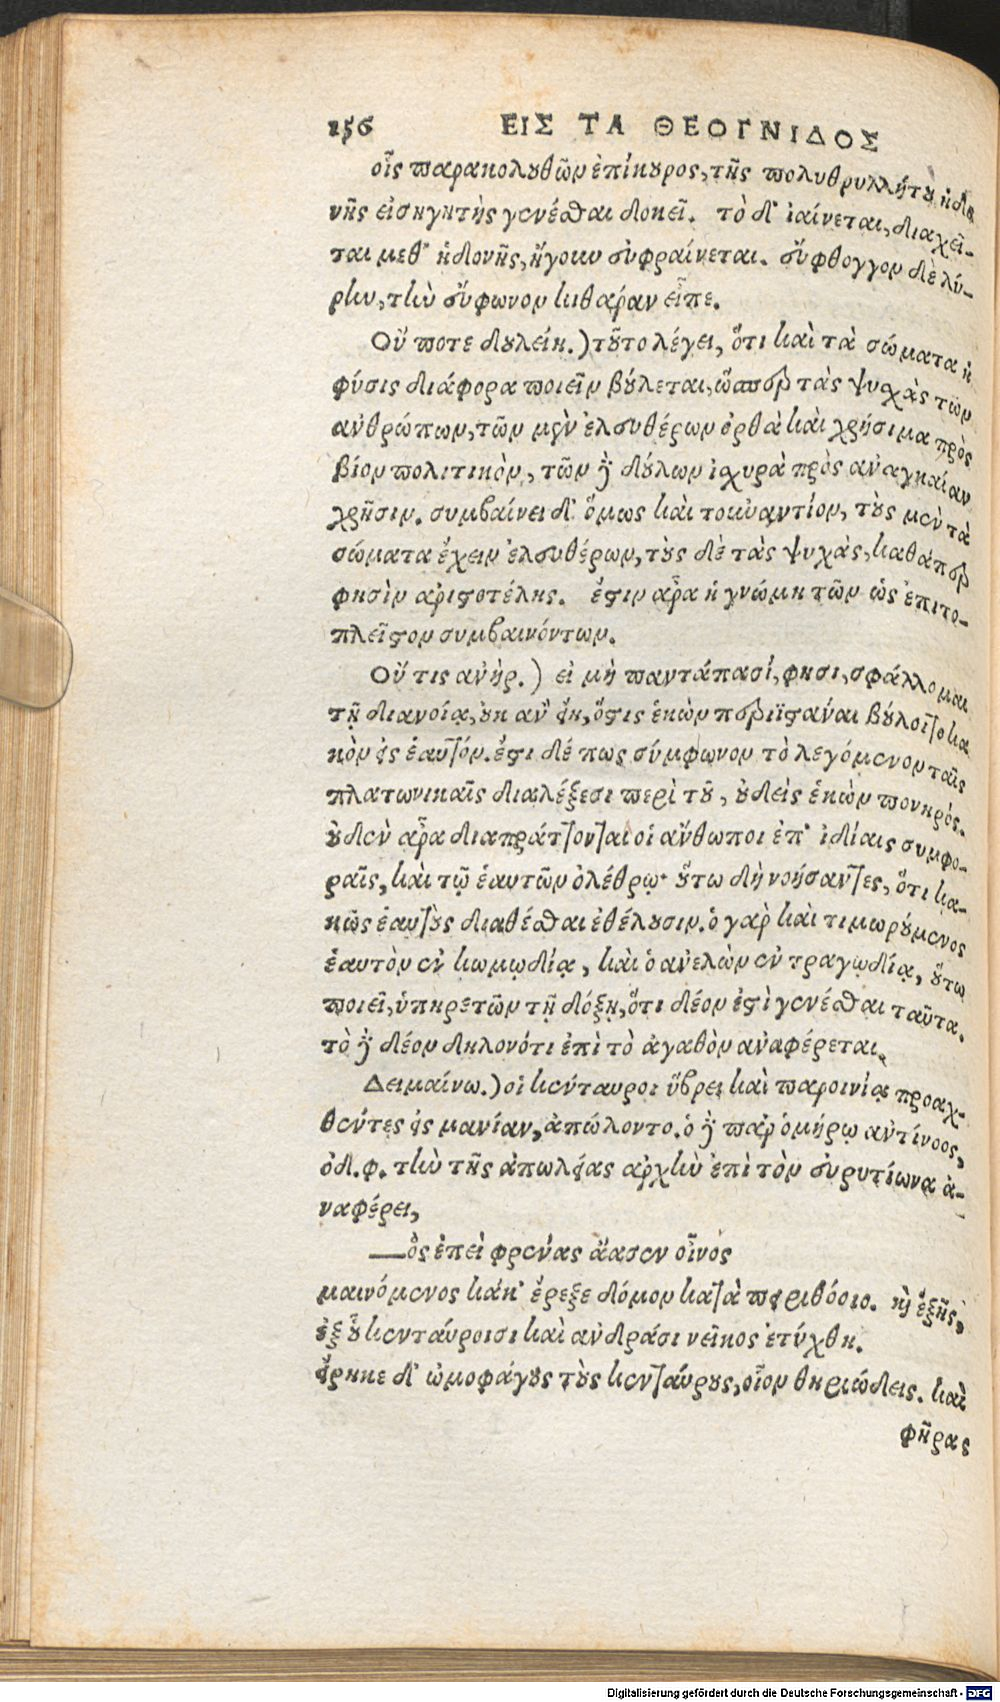 156 ΕΙΣ ΤΑ ΘΕΟΓΝΙΔΟΣ
οἷς παρακολουθῶν ἐπίκουρος, τῆς πολυθρυλλήτου ἡδο
νῆς εἰσηγητὴς γενέσθαι δοκεῖ. τὸ δ' ἰαίνεται, διαχεῖ-
ται μεθ' ἡδονῆς, ἤγουν εὐφραίνεται. εὔφθογγον δὲ λύ-
ρην, τὴν εὔφωνον κιθάραν εἶπε.
Οὔ ποτε δουλείη.) τοῦτο λέγει, ὅτι καὶ τὰ σώματα ἡ
φύσις διάφορα ποιεῖν βούλεται, ὥσπερ τὰς ψυχὰς τῶν
ἀνθρώπων, τῶν μὲν ἐλευθέρων ὀρθὰ καὶ χρήσιμα πρὸς
βίον πολιτικὸν, τῶν δὲ δούλων ἰσχυρὰ πρὸς ἀναγκαίαν
χρῆσιν. συμβαίνει δ' ὅμως καὶ τοὐναντίον, τοὺς μὲν τὰ
σώματα ἔχειν ἐλευθέρων, τοὺς δὲ τὰς ψυχὰς, καθάπερ
φησὶν ἀριστοτέλης. ἔστιν ἄρα ἡ γνώμη τῶν ὡς ἐπιτο-
πλεῖστον συμβαινόντων.
Οὔ τις ἀνήρ.) εἰ μὴ παντάπασί, φησι, σφάλλομαι
τῇ διανοίᾳ, οὐκ ἂν εἴη, ὅστις ἑκὼν περιϊστάναι βούλοιτο κα
κὸν εἰς ἑαυτόν. ἔστι δέ πως σύμφωνον τὸ λεγόμενον ταῖς
πλατωνικαῖς διαλέξεσι περὶ τοῦ, οὐδεὶς ἑκὼν πονηρός.
οὐδὲν ἄρα διαπράττονται οἱ ἄνθωποι ἐπ' ἰδίαις συμφο-
ραῖς, καὶ τῷ ἑαυτῶν ὀλέθρῳ· οὕτω δὴ νοήσαντες, ὅτι κα-
κῶς ἑαυτοὺς διαθέσθαι ἐθέλουσιν. ὁ γὰρ καὶ τιμωρούμενος
ἑαυτὸν ἐν κωμῳδίᾳ, καὶ ὁ ἀνελὼν ἐν τραγῳδίᾳ, οὕτω
ποιεῖ, ὑπηρετῶν τῇ δόξῃ, ὅτι δέον ἐστὶ γενέσθαι ταῦτα.
τὸ δὲ δέον δηλονότι ἐπὶ τὸ ἀγαθὸν ἀναφέρεται.
Δειμαίνω.) οἱ κένταυροι ὕβρει καὶ παροινίᾳ προαχ-
θέντες εἰς μανίαν, ἀπώλοντο. ὁ δὲ παρ' ὁμήρῳ ἀντίνοος,
ὀδ. φ. τὴν τῆς ἀπωλείας ἀρχὴν ἐπὶ τὸν εὐρυτίωνα ἀ-
ναφέρει,
—ὃς ἐπεὶ φρένας ἄασεν οἶνος
μαινόμενος κάκ' ἔρεξε δόμον κατὰ πειριθόοιο. καὶ ἑξῆς,
ἐξ οὗ κενταύροισι καὶ ἀνδράσι νεῖκος ἐτύχθη.
εἴρηκε δ' ὠμοφάγους τοὺς κενταύρους, οἷον θηριώδεις. καὶ
φῆρας
Digitalisierung gefördert durch die Deutsche Forschungsgemeinschaft - DFG